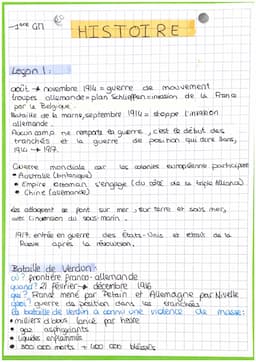 1ère GM
HISTOIRE
Leçon 1 :
août → novembre 1914 = guerre de mouvement
troupes allemande = plan Schlieffen = invasion de la France
par la Belgique
Bataille de la marne, septembre 1914 = stoppe l'invasion
allemande
Aucun camp ne remporte la guerre, c'est le début des
tranchés et la guerre de position qui dure 3ans,
1914 → 1917.
Guerre mondiale car les colonies européenne participent
• Australie (britanique)
• Empire ottoman s'engage (du côté de la triple Alliance)
• Chine (allemande)
les attaquent se font sur mer, sur terre et sous mer,
avec l'invension du sous-marin.
1917, entrée en guerre des États-Unis et retrait de la
Russie après la révolution.
Bataille de Verdun :
où ? frontière franco-allemande
quand ? 21 février → décembre 1916
qui ? France mené par Petain et Allemagne par Nivelle
quoi ? guerre de position dans les tranchées
la bataille de Verdun a connu une violence de masse :
• milliers d'obus lancé par heure
• gaz asphyxiants
• liquides enflammés
• 300 000 morts + 400 000 blessés